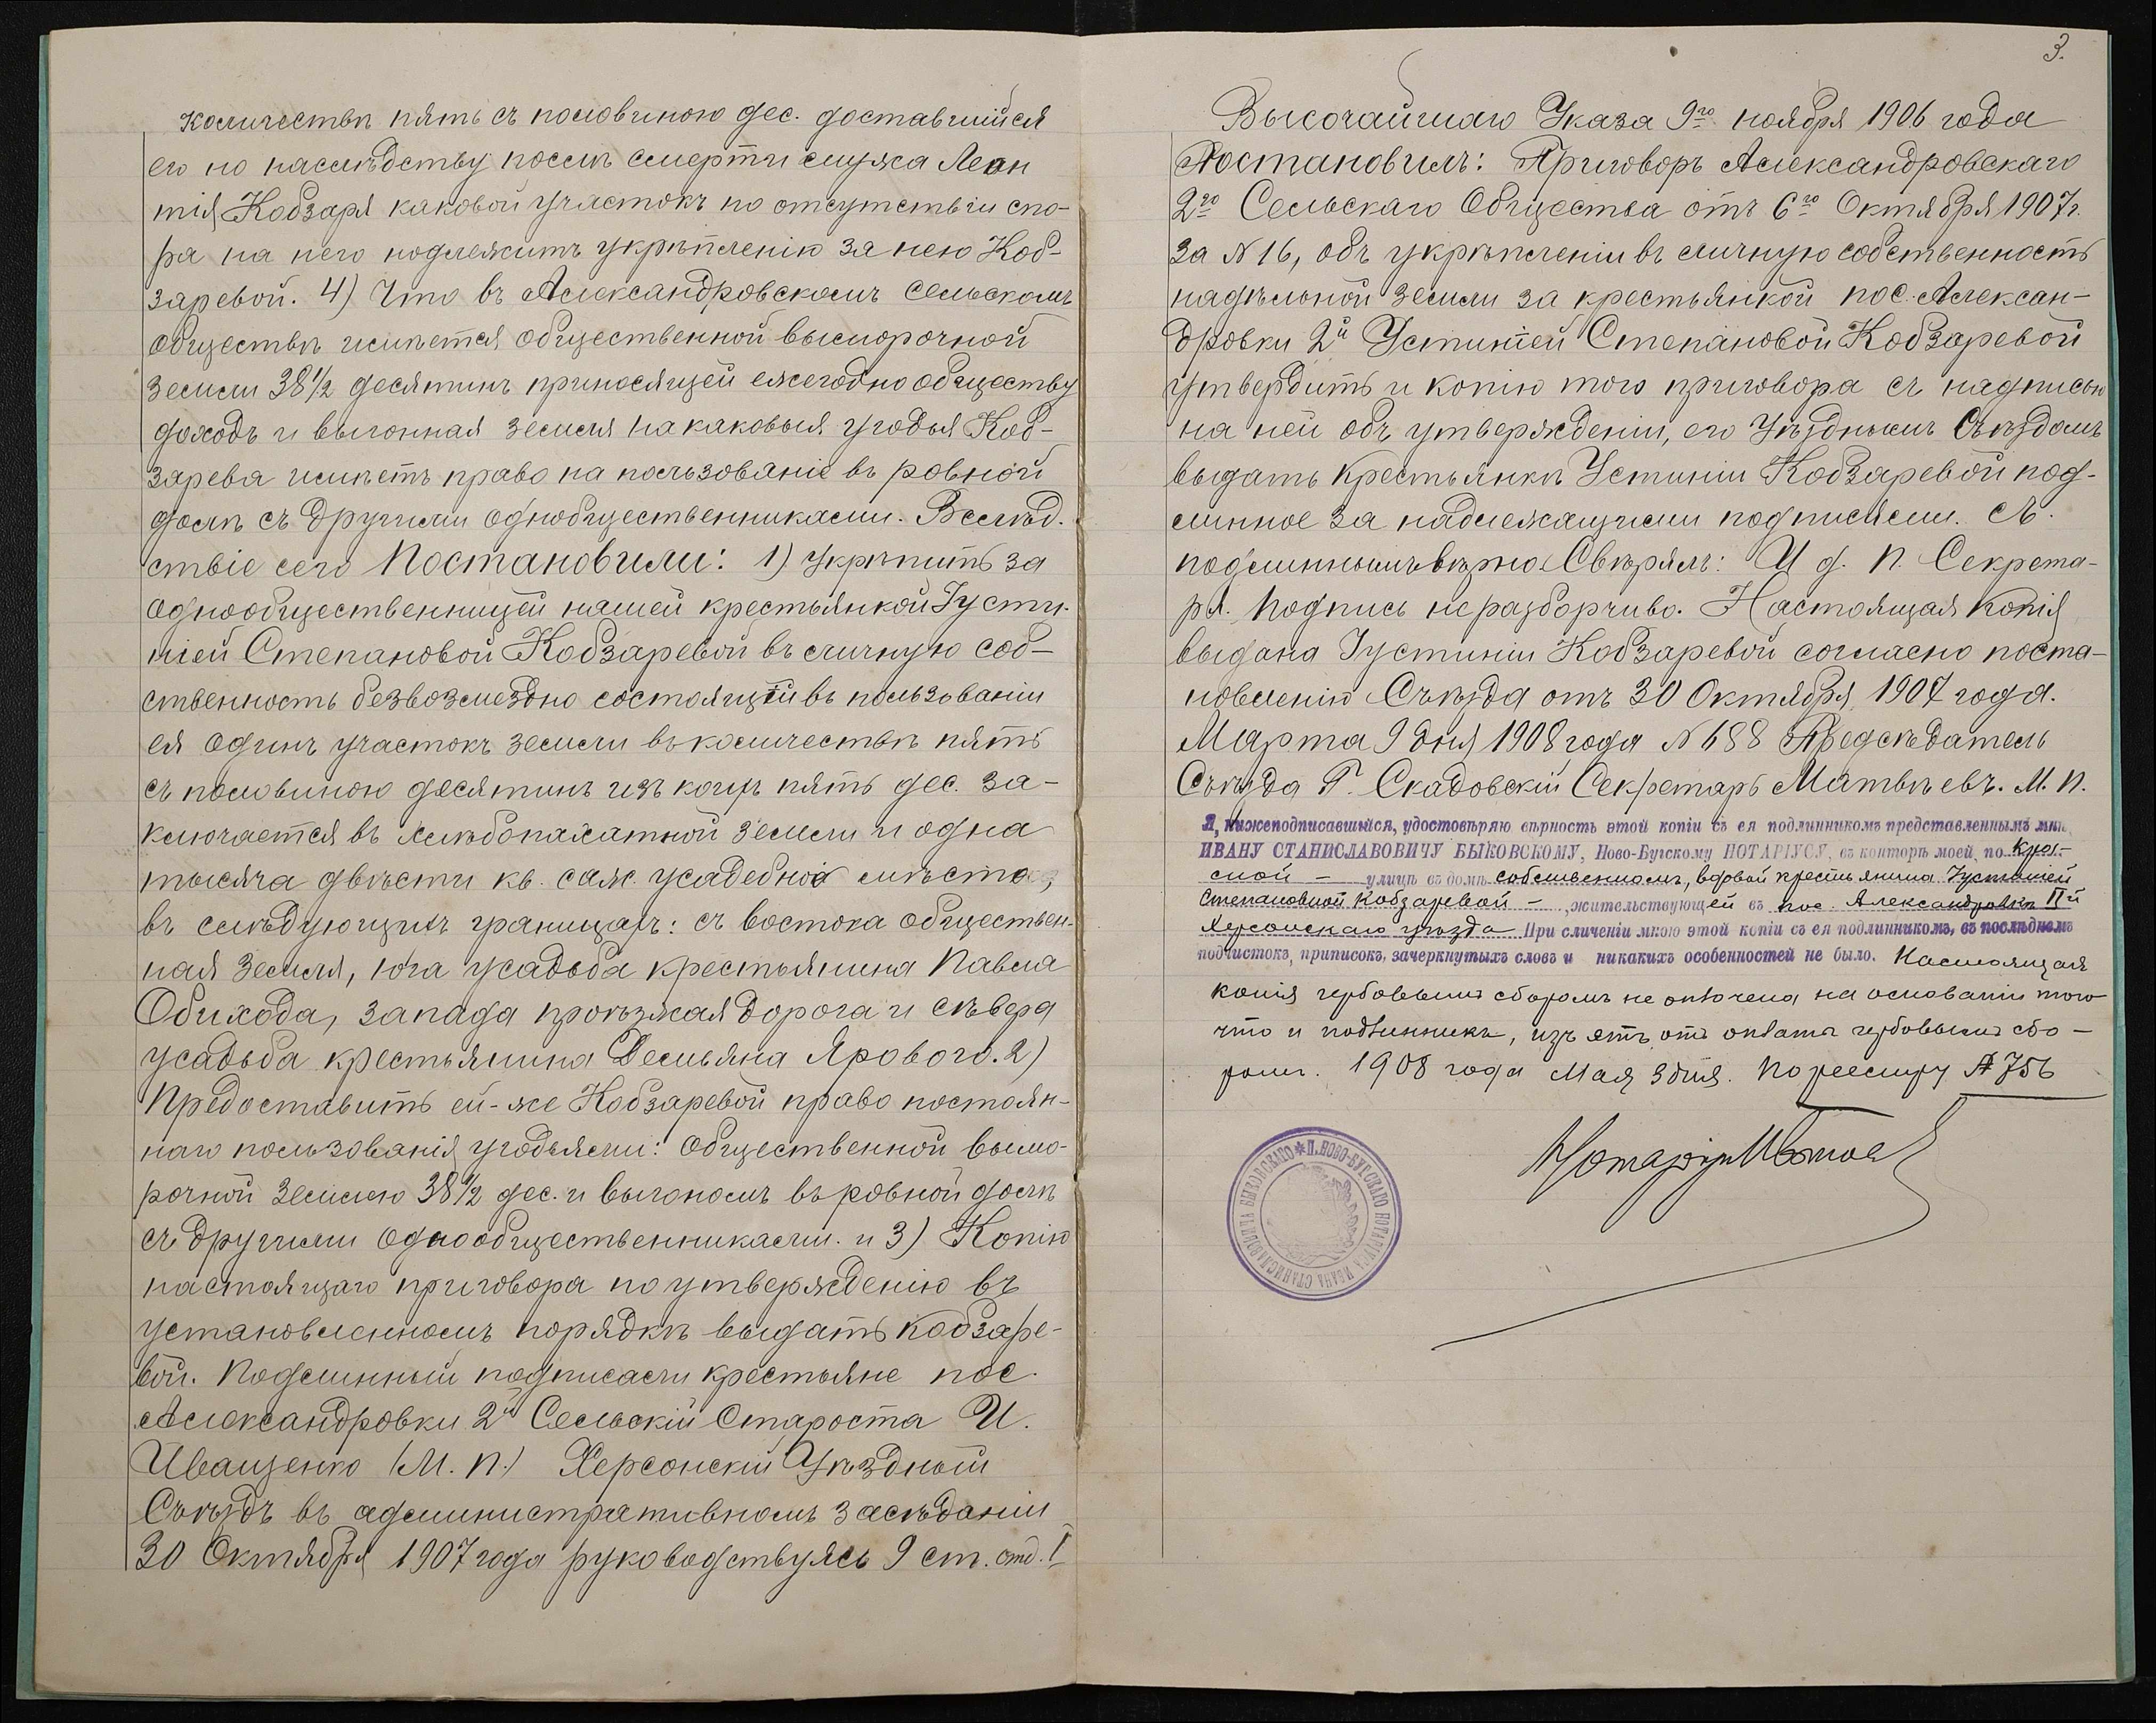 количествѣ пять съ половиною дес. доставшійся
ею по наслѣдству послѣ смерти мужа Леон
тія Кобзаря каковой участокъ по отсутствію спо-
ра на него подлежитъ укрѣпленію за нею Коб-
заревой. 4) Что въ Александровскомъ сельскомъ
обществѣ имѣется общественной выморочной
земли 38½ десятинъ приносящей ежегодно обществу
доходъ и выгонная земля на каковыя угодья Коб-
зарева имѣетъ право на пользованіе въ ровной
долѣ съ другими однобщественниками. Вслѣд.
ствіе сего Постановили: 1) укрѣпить за
однообщественницей нашей крестьянкой Густи-
ніей Степановой Кобзаревой въ личную соб-
ственность безвозмездно состоящій въ пользованіи
ея одинъ участокъ земли въ количествѣ пять
съ половиною десятинъ изъ коихъ пять дес. за-
ключается въ хлѣбопахатной земли и одна
тысяча двѣсти кв. саж. усадебной мѣсто,
въ слѣдующихъ границахъ: съ востока обществен-
ная земля, юга усадьба крестьянина Павла
Обихода, запада проѣзжая дорога и сѣвера
усадьба крестьянина Демьяна Ярового. 2)
Предоставить ей-же Кобзаревой право постоян-
наго пользованія угодьями: общественной вымо-
рочной землею 38½ дес. и выгономъ въ ровной долѣ
съ другими однообщественниками. и 3) Копію
настоящаго приговора по утвержденію въ
установленномъ порядкѣ выдать Кобзаре-
вой. Подлинный подписали крестьяне пос.
Александровки 2й Сельскій Староста И.
Иващенко (М. П.) Херсонскій Уѣздный
Съѣздъ въ административномъ засѣданіи
30 Октября 1907 года руководствуясь 9 ст. отд. I
3.
Высочайшаго Указа 9го ноября 1906 года
Постановилъ: Приговоръ Александровскаго
2го Сельскаго Общества отъ 6го Октября 1907 г.
за N 16, объ укрѣпленіи въ личную собственность
надѣльной земли за крестьянкой пос. Алексан-
дровки 2й Устиніей Степановой Кобзаревой
утвердить и копію того приговора съ надписью
на ней объ утвержденіи, его Уѣзднымъ Съѣздомъ
выдать крестьянкѣ Устиніи Кобзаревой под-
линное за надлежащими подписями. Съ
подлиннымъ вѣрно. Свѣрялъ: И. д. П. Секрета-
ря. Подпись неразборчиво. Настоящая копія
выдана Густиніи Кобзаревой согласно поста-
новленію Съѣзда отъ 30 Октября 1907 года.
Марта 9 дня 1908 года N 688 Предсѣдатель
Съѣзда Г. Скадовскій Секретарь Матвѣевъ. М. П.
Я, нижеподписавшійся, удостовѣряю вѣрность этой копіи съ ея подлинникомъ представленнымъ мнѣ,
ИВАНУ СТАНИСЛАВОВИЧУ БЫКОВСКОМУ, Ново-Бугскому НОТАРІУСУ, въ конторѣ моей, по
улицѣ въ домѣ собственномъ, вдовой крестьянина Густиніей
Степановной Кобзаревой – , жительствующей въ пос. Александровкѣ IIй
Херсонскаго уѣзда При сличеніи мною этой копіи съ ея подлинникомъ, въ послѣднемъ
подчистокъ, приписокъ, зачеркнутыхъ словъ и никакихъ особенностей не было. Настоящая
копія гербовымъ сборомъ не оплочена на основаніи того
что и подлинникъ, изъятъ отъ оплаты гербовымъ сбо-
ромъ. 1908 года Мая 3 дня. По реестру № 756
Нотаріусъ
* П. НОВО-БУГСКАГО НОТАРІУСА ИВАНА СТАНИСЛАВОВИЧА БЫКОВСКАГО